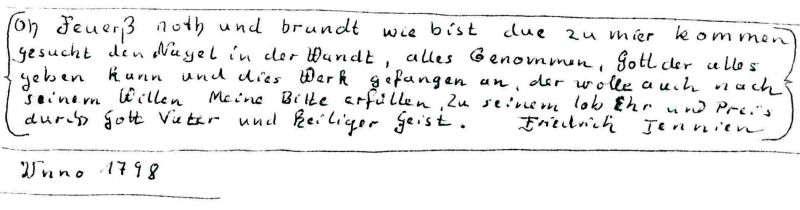 Oh Feuerß noth und brandt wie bist due zu mier kommen
gesucht den Nagel in der Wandt, alles Genommen, Gott der alles
geben kann und dies Werk gefangen an, der wolle auch nach
seinem Willen Meine Bitte erfüllen, Zu seinem lob Ehr und Preis
durch Gott Vater und heiliger Geist. Friedrich Jennien
Anno 1798